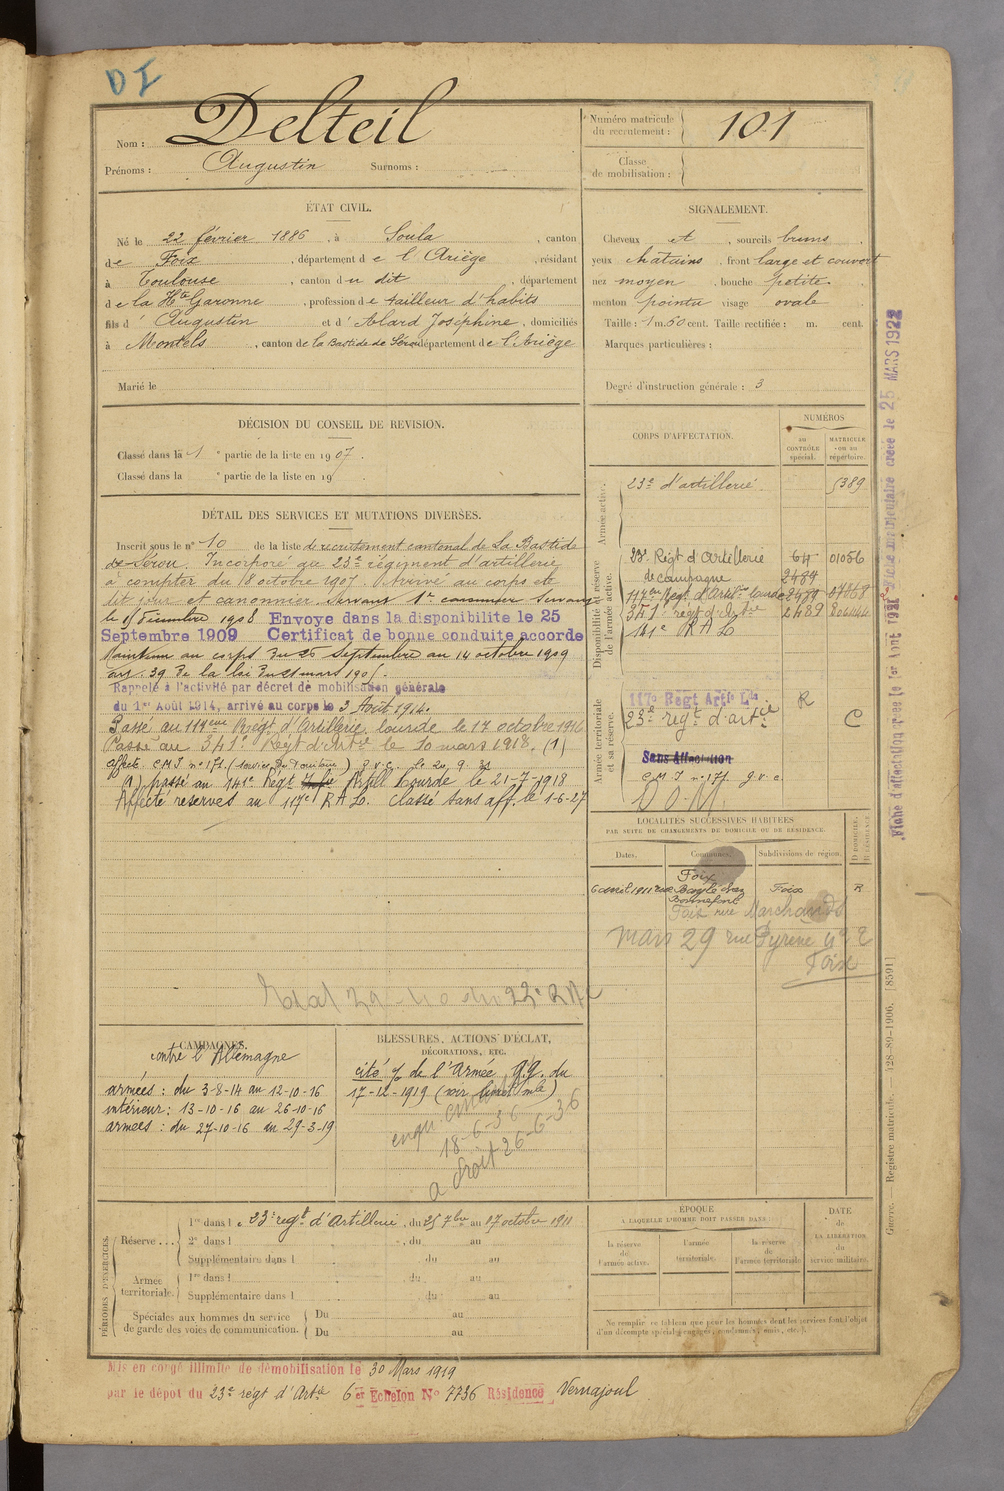 DI
Nom : Delteil
Prénoms : Augustin Surnoms :
Numéro matricule du recrutement : 101
Classe de mobilisation :
ÉTAT CIVIL.
Né le 22 février 1886, à Soula, canton
de Foix, département de l'Ariège, résidant
à Toulouse, canton du dit, département
de la Hte Garonne, profession de tailleur d'habits
fils d'Augustin et d'Alard Joséphine, domiciliés
à Montels, canton de la Bastide de Sérou département de l'Ariège
Marié le
SIGNALEMENT.
Cheveux et, sourcils bruns
yeux chatains, front large et couvert
nez moyen, bouche petite
menton pointu visage ovale
Taille : 1 m. 60 cent. Taille rectifiée : m. cent.
Marques particulières :
Degré d'instruction générale : 3
DÉCISION DU CONSEIL DE REVISION.
Classé dans la 1e partie de la liste en 1907.
Classé dans la e partie de la liste en 19
DÉTAIL DES SERVICES ET MUTATIONS DIVERSES.
Inscrit sous le n° 10 de la liste de recrutement cantonal de La Bastide
de Sérou. Incorporé au 23e régiment d'artillerie
à compter du 8 octobre 1907. Arrivé au corps le
dit jour et canonnier servant 1er canonnier servant
le 1er décembre 1908 Envoye dans la disponibilite le 25
Septembre 1909 Certificat de bonne conduite accorde
Maintenu au corps du 26 septembre au 14 octobre 1909
art. 39 de la loi du 21 mars 1905.
Rappelé à l'activité par décret de mobilisation générale
du 1er Août 1914, arrivé au corps le 3 Août 1914.
Passé au 114eme Régt d'Artillerie lourde le 17 octobre 1916
Passé au 341e Régt d'Artie le 10 mars 1918. (1)
affecté C.M.I n° 171 (Service de Toulouse) g.v.c. le 20.9.21
(1) passé au 141e Régt Artill Lourde le 21-7-1918
Affecté reserves au 117e R A L. Classé sans aff. le 1-6-27
CORPS D'AFFECTATION.
NUMÉROS
au CONTRÔLE spécial.
MATRICULE ou au répertoire.
Armée active.
23e d'artillerie 5389
Disponibilité et réserve de l'armée active.
23e Régt d'Artillerie de campagne 64 01056
2484
114eme Régt d'Artie lourde 2489 04868
341e régt d'Artie 2489
141e R A L
Armée territoriale et sa réserve.
117e Regt Artie Lde R
23e regt d'artie C
Sans Affectation
C M I n° 171 g.v.c.
D.O.M.
Fiche d'affectation créée le 1er Aout 1921
Fiche matriculaire créée le 25 MARS 1922
LOCALITÉS SUCCESSIVES HABITÉES
PAR SUITE DE CHANGEMENTS DE DOMICILE OU DE RÉSIDENCE.
Dates. Communes. Subdivisions de région. D DOMICILE. R RÉSIDENCE
6 avril 1911 Foix rue Bayle chez Bonnefont Foix R
Foix rue Marchands
Mars 29 rue Pyrène n° 2
Foix
CAMPAGNES.
contre l'Allemagne
armées : du 3-8-14 au 12-10-16
intérieur : 13-10-16 au 26-10-16
armées : du 27-10-16 au 29-3-19
BLESSURES, ACTIONS D'ÉCLAT,
DÉCORATIONS, ETC.
cité % de l'Armée g.g. du
17-12-1919 (voir livret mle)
18-6-36
a droit 26-6-36
PÉRIODES D'EXERCICES.
Réserve...
1re dans le 23e regt d'Artillerie, du 25 7bre au 17 octobre 1911
2e dans l , du au
Supplémentaire dans l du au
Armée territoriale.
1re dans l du au
Supplémentaire dans l du au
Spéciales aux hommes du service de garde des voies de communication.
Du au
Du au
ÉPOQUE
À LAQUELLE L'HOMME DOIT PASSER DANS
la réserve de l'armée active.
l'armée territoriale.
la réserve de l'armée territoriale
DATE de LA LIBÉRATION du service militaire.
Ne remplir ce tableau que pour les hommes dont les services font l'objet
d'un décompte spécial (engagés, condamnés, omis, etc.).
Guerre. — Registre matricule. — 428-89-1906. [8591]
Mis en congé illimité de démobilisation le 30 Mars 1919
par le dépôt du 23e régt d'Artie 6e Echelon N° 7736 Résidence Vernajoul